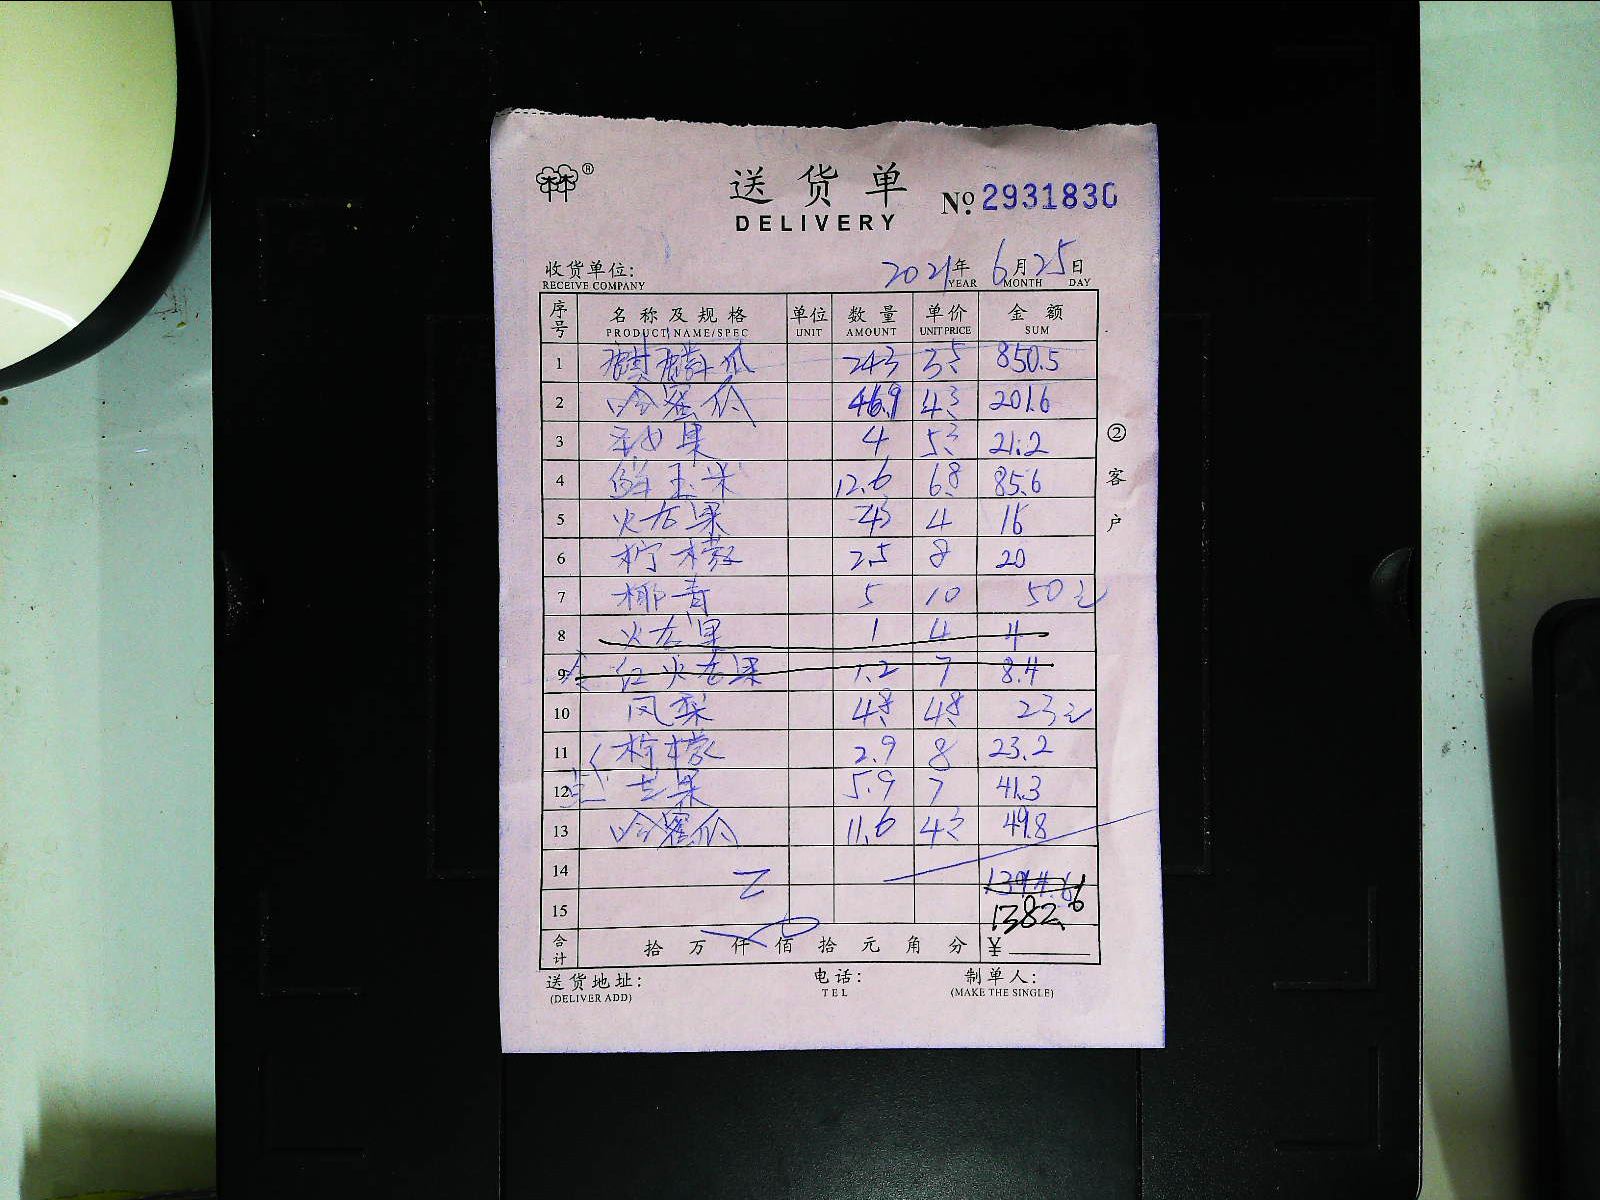 林林®
送货单
DELIVERY
No. 2931830
收货单位:
RECEIVE COMPANY
2021年 6月25日
YEAR MONTH DAY
序号 名称及规格 单位 数量 单价 金额
PRODUCT NAME/SPEC UNIT AMOUNT UNIT PRICE SUM
1 麒麟瓜 243 3.5 850.5
2 哈蜜瓜 46.9 4.3 201.6
3 圣女果 4 5.3 21.2
4 鲜玉米 12.6 6.8 85.6
5 火龙果 4 16
6 柠檬 2.5 8 20
7 椰青 5 10 50元
8 火龙果 1 4 4
9 红火龙果 1.2 7 8.4
10 凤梨 4.8 4.8 23元
11 柠檬 2.9 8 23.2
12 吉果 5.9 7 41.3
13 哈蜜瓜 11.6 4.3 49.8
14 1394.6
15 1382.6
合计 拾 万 仟 佰 拾 元 角 分 ¥
②客户
送货地址: 电话: 制单人:
(DELIVER ADD) TEL (MAKE THE SINGLE)